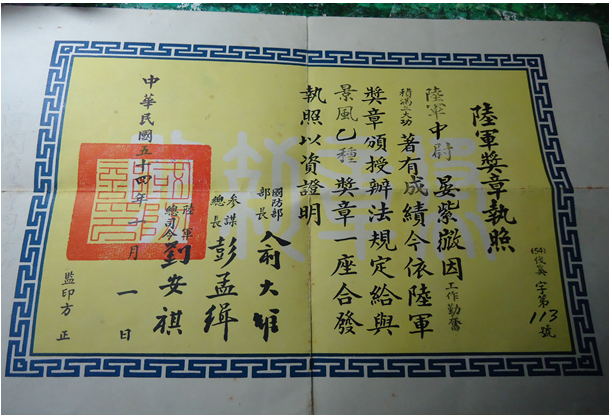 陸軍獎章執照
(54) 字第113號
陸軍中尉 晏紫 因工作勤奮
積滿大功 著有成績令依陸軍
獎章頒授辦法規定給與
景風乙種 獎章一座合發
執照以資證明
國防部部長 俞大維
參謀總長 彭孟緝
陸軍總司令 劉安祺
中華民國五十四年十月一日
監印方 正